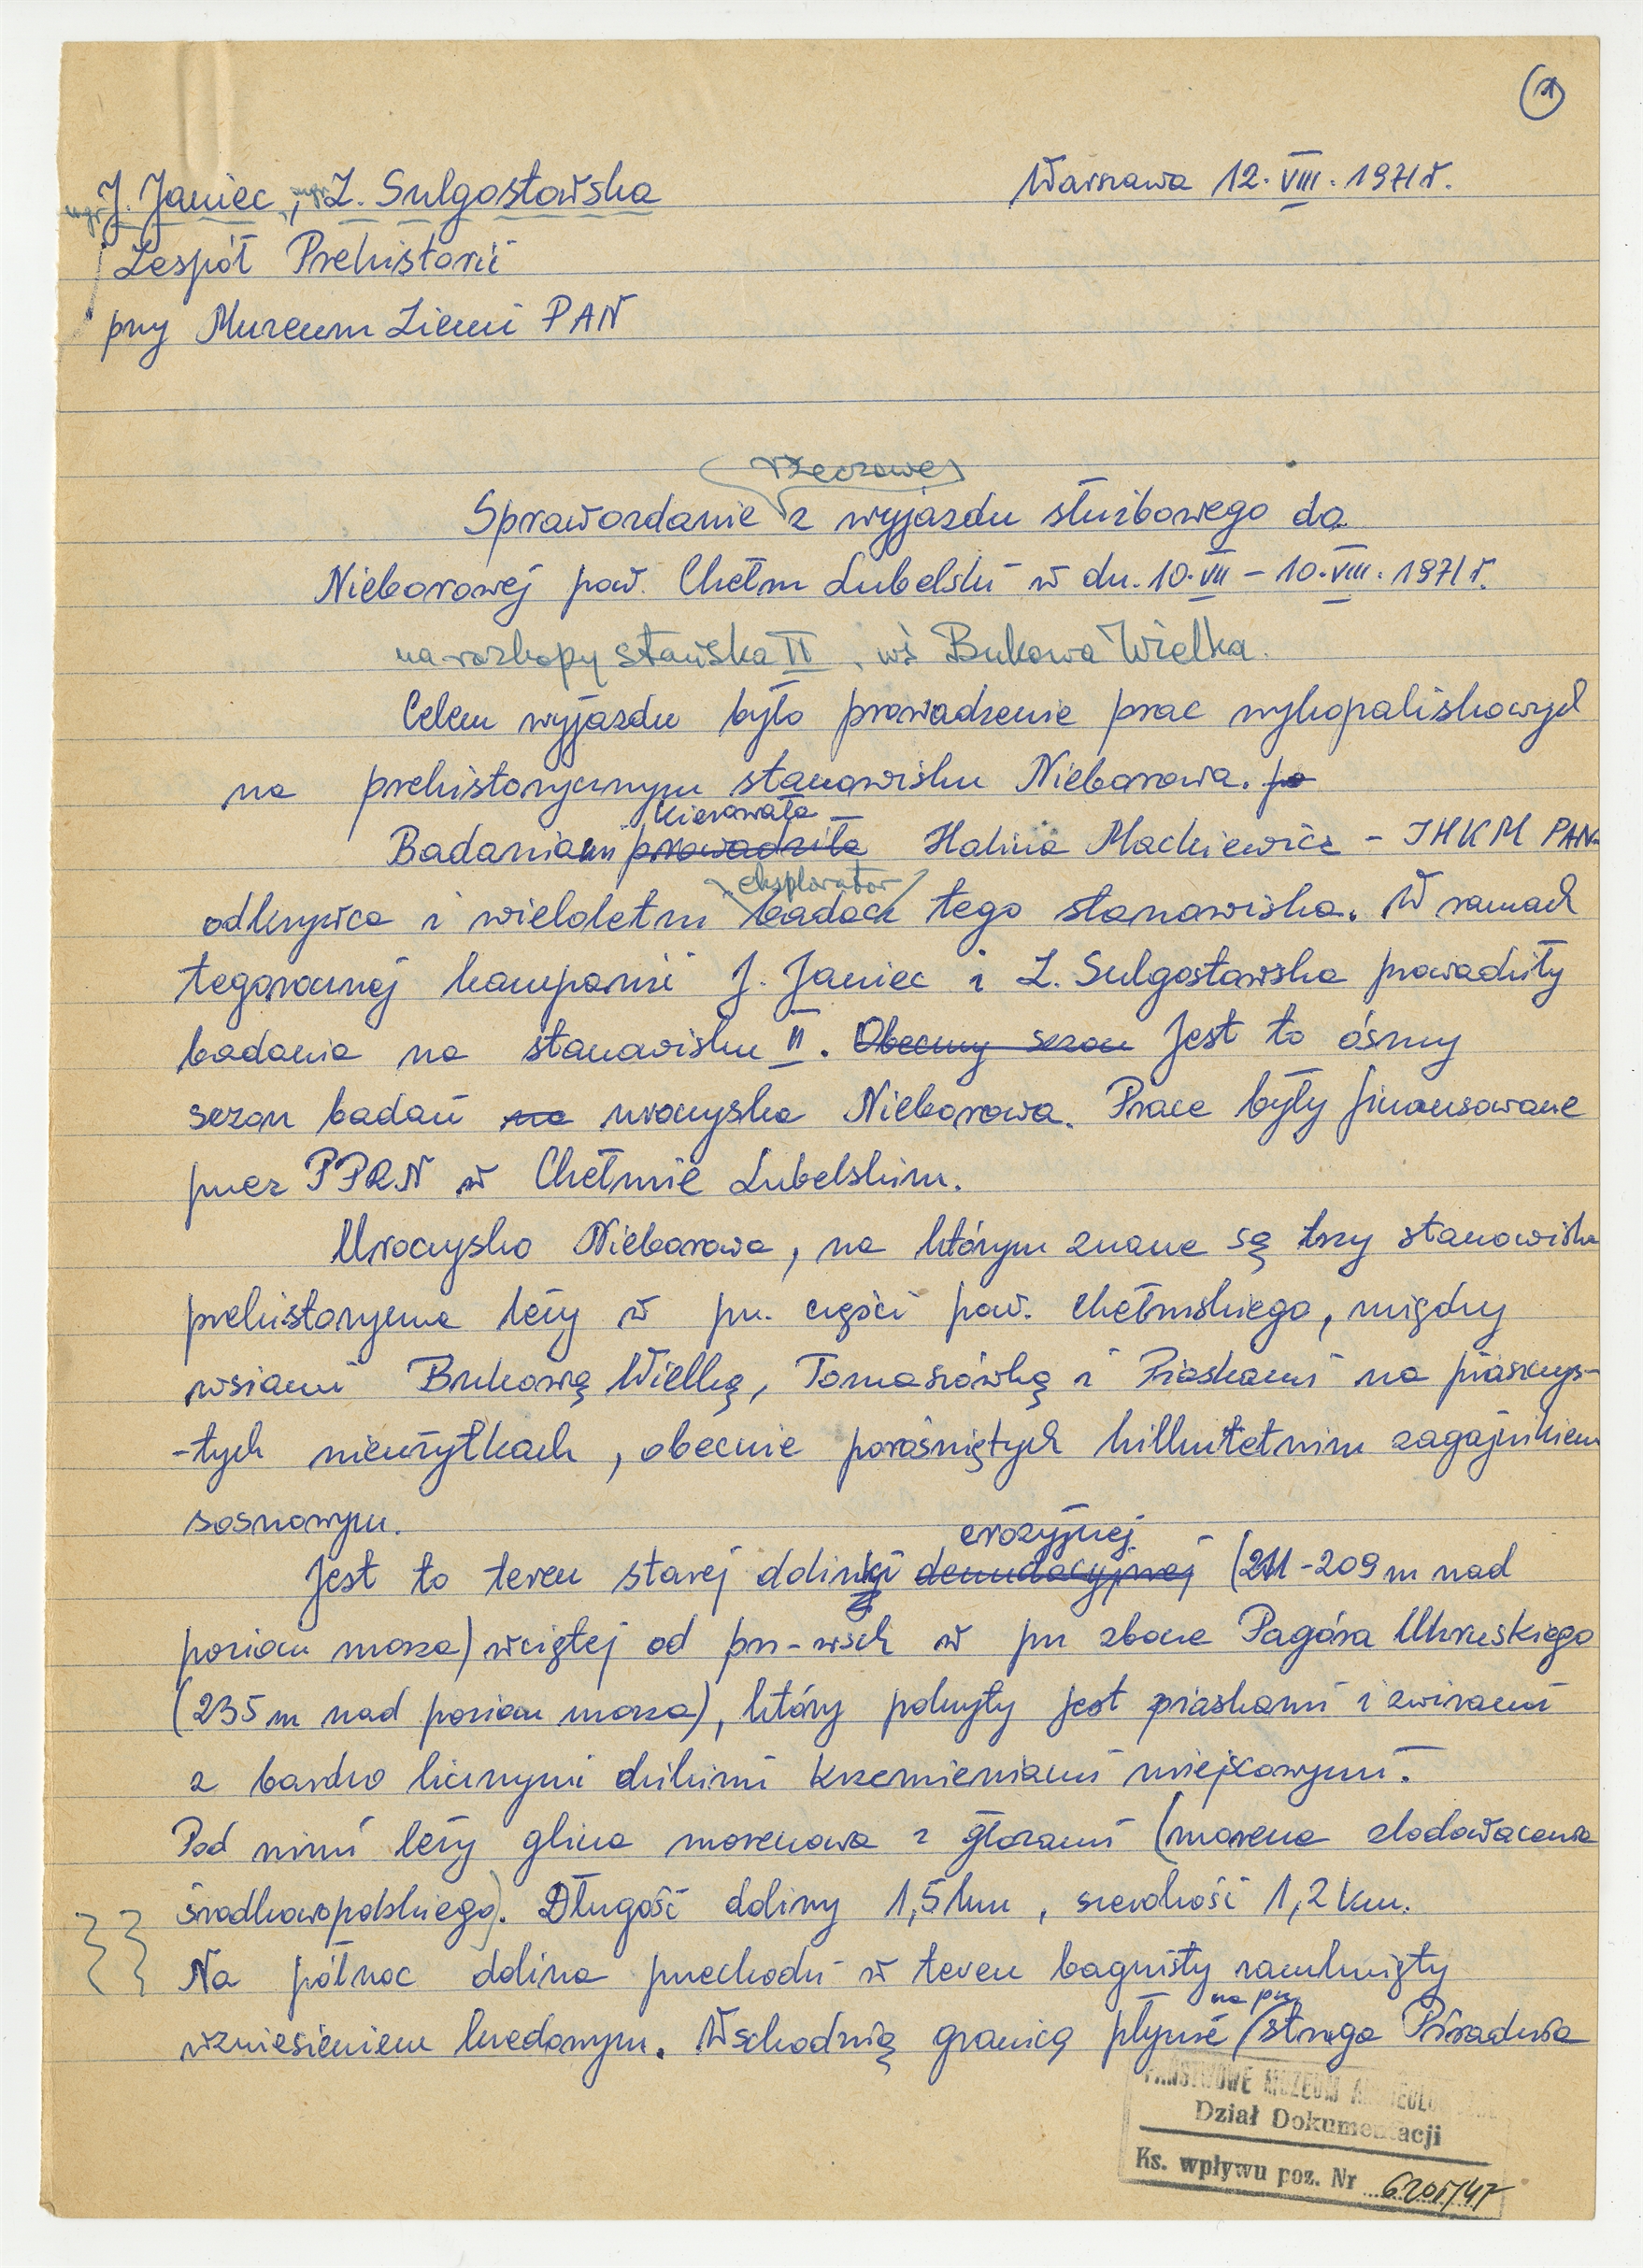 1
Warszawa 12.VIII.1971 r.
mgr J. Janiec, mgr Z. Sulgostowska
Zespół Prehistorii
przy Muzeum Ziemi PAN
rzeczowe
Sprawozdanie z wyjazdu służbowego do
Nieborowej pow. Chełm Lubelski w dn. 10.VII – 10.VIII.1971 r.
na rozkopy stańska II, wś Bukowa Wielka.
Celem wyjazdu było prowadzenie prac wykopaliskowych
na prehistorycznym stanowisku Nieborowa. po
kierowała
Badaniami prowadziła Halina Mackiewicz – IHKM PAN
eksplorator
odkrywca i wieloletni badacz tego stanowiska. W ramach
tegorocznej kampanii J. Janiec i Z. Sulgostowska prowadziły
badania na stanowisku II. Obecny sezon Jest to ósmy
sezon badań na uroczyska Nieborowa. Prace były finansowane
przez PPRN w Chełmie Lubelskim.
Uroczysko Nieborowa, na którym znane są trzy stanowiska
prehistoryczne leży w pn. części pow. chełmskiego, między
wsiami Bukową Wielką, Tomaszówką i Piaskami na piaszczys-
-tych nieużytkach, obecnie porośniętych kilkuletnim zagajnikiem
sosnowym.
erozyjnej
Jest to teren starej dolinki denudacyjnej (211-209 m nad
poziom morza) wciętej od pn-wsch w pn zbocze Pagóra Uhruskiego
(235 m nad poziom morza), który pokryty jest piaskami i żwirami
z bardzo licznymi dzikimi krzemieniami miejscowymi.
Pod nimi leży glina morenowa z głazami (morena zlodowacenia
środkowopolskiego). Długość doliny 1,5 km, szerokość 1,2 km.
Na północ dolina przechodzi w teren bagnisty zamknięty
na pn.
wzniesieniem kredowym. Wschodnią granicą płynie struga
PAŃSTWOWE MUZEUM ARCHEOLOGICZNE
Dział Dokumentacji
Ks. wpływu poz. Nr